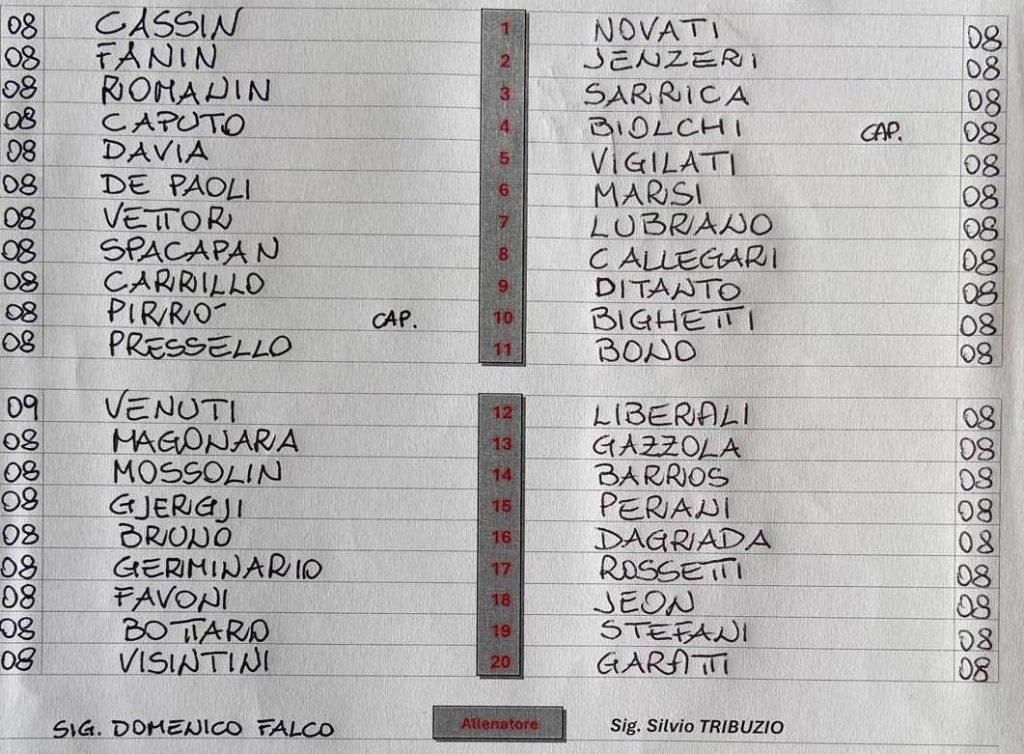 08 CASSIN 1 NOVATI 08
08 FANIN 2 JENZERI 08
08 ROMANIN 3 SARRICA 08
08 CAPUTO 4 BIOLCHI CAP. 08
08 DAVIA 5 VIGILATI 08
08 DE PAOLI 6 MARSI 08
08 VETTOR 7 LUBRANO 08
08 SPACAPAN 8 CALLEGARI 08
08 CARRILLO 9 DITANTO 08
08 PIRRO´ CAP. 10 BIGHETTI 08
08 PRESSELLO 11 BONO 08
09 VENUTI 12 LIBERALI 08
08 MAGONARA 13 GAZZOLA 08
08 MOSSOLIN 14 BARRIOS 08
08 GJERGJI 15 PERANI 08
08 BRUNO 16 DAGRADA 08
08 GERMINARIO 17 ROSSETTI 08
08 FAVONI 18 JEON 08
08 BOTTARO 19 STEFANI 08
08 VISINTINI 20 GARATTI 08
SIG. DOMENICO FALCO Allenatore Sig. Silvio TRIBUZIO